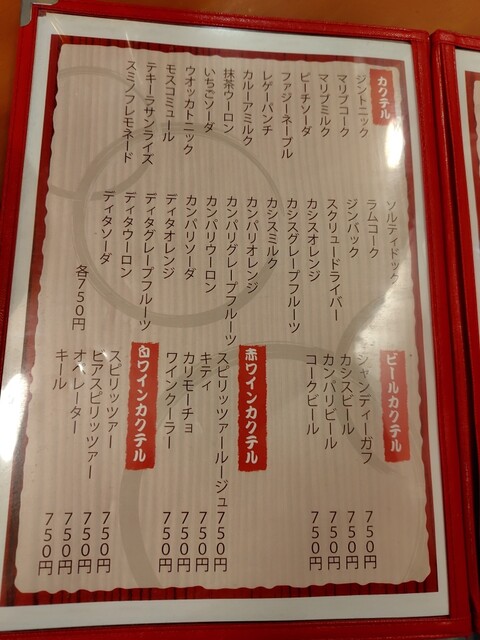 カクテル
ジントニック
マリブコーク
マリブミルク
ピーチソーダ
ファジーネーブル
レゲーパンチ
カルーアミルク
抹茶ウーロン
いちごソーダ
ウオッカトニック
モスコミュール
テキーラサンライズ
スミノフレモネード
ソルティドック
ラムコーク
ジンバック
スクリュードライバー
カシスオレンジ
カシスグレープフルーツ
カシスミルク
カンパリオレンジ
カンパリグレープフルーツ
カンパリウーロン
カンパリソーダ
ディタオレンジ
ディタグレープフルーツ
ディタウーロン
ディタソーダ
各750円
ビールカクテル
シャンディーガフ 750円
カシスビール 750円
カンパリビール 750円
コークビール 750円
赤ワインカクテル
スピリッツァールージュ 750円
キティ 750円
カリモーチョ 750円
ワインクーラー 750円
白ワインカクテル
スピリッツァー 750円
ビアスピリッツァー 750円
オペレーター 750円
キール 750円